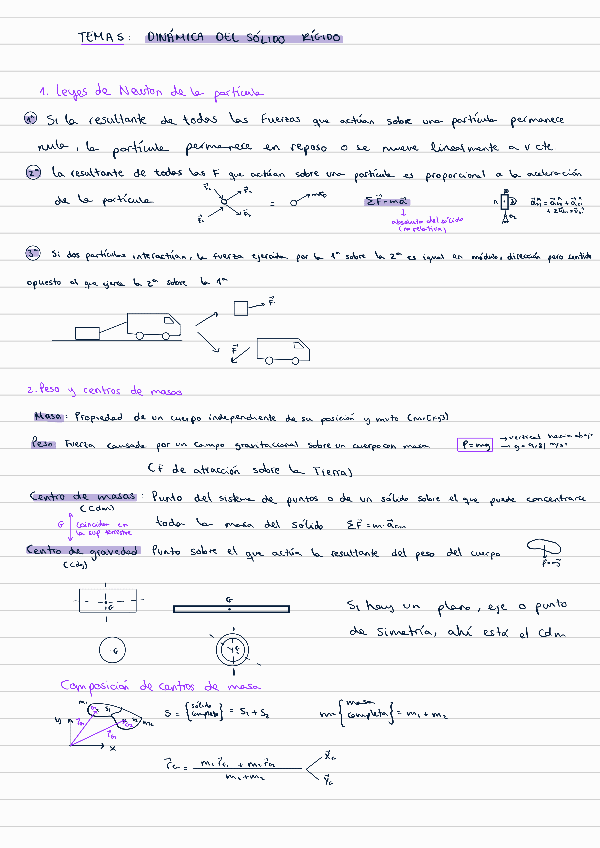 TEMA 5: DINÁMICA DEL SÓLIDO RÍGIDO
1. Leyes de Newton de la partícula
1ª Si la resultante de todas las Fuerzas que actúan sobre una partícula permanece
nula, la partícula permanece en reposo o se mueve linealmente a v cte
2ª La resultante de todas las F que actúan sobre una partícula es proporcional a la aceleración
de la partícula
=
ΣF⃗ = ma⃗
absoluta del sólido
(no relativa)
3ª Si dos partículas interactúan, la fuerza ejercida por la 1ª sobre la 2ª es igual en módulo, dirección pero sentido
opuesto al que ejerce la 2ª sobre la 1ª
F⃗
F⃗
2. Peso y centros de masas
Masa: Propiedad de un cuerpo independiente de su posición y
Peso Fuerza causada por un campo gravitacional sobre un cuerpo con masa P = mg → vertical hacia abajo
→ g = 9,81 m/s²
(F de atracción sobre la Tierra)
Centro de masas: Punto del sistema de puntos o de un sólido sobre el que puede concentrarse
(Cdm)
G coinciden en
la sup terrestre
toda la masa del sólido ΣF = m·a⃗
Centro de gravedad Punto sobre el que actúa la resultante del peso del cuerpo
(Cdg)
G
G
G
G
Si hay un plano, eje o punto
de simetría, ahí está el cdm
Composición de centros de masa
m₁ S₁ m₂
y x
S = {sólido completo} = S₁ + S₂
m = {masa completa} = m₁ + m₂
r⃗G = m₁ r⃗G₁ + m₂ r⃗G₂
m₁ + m₂
XG
YG